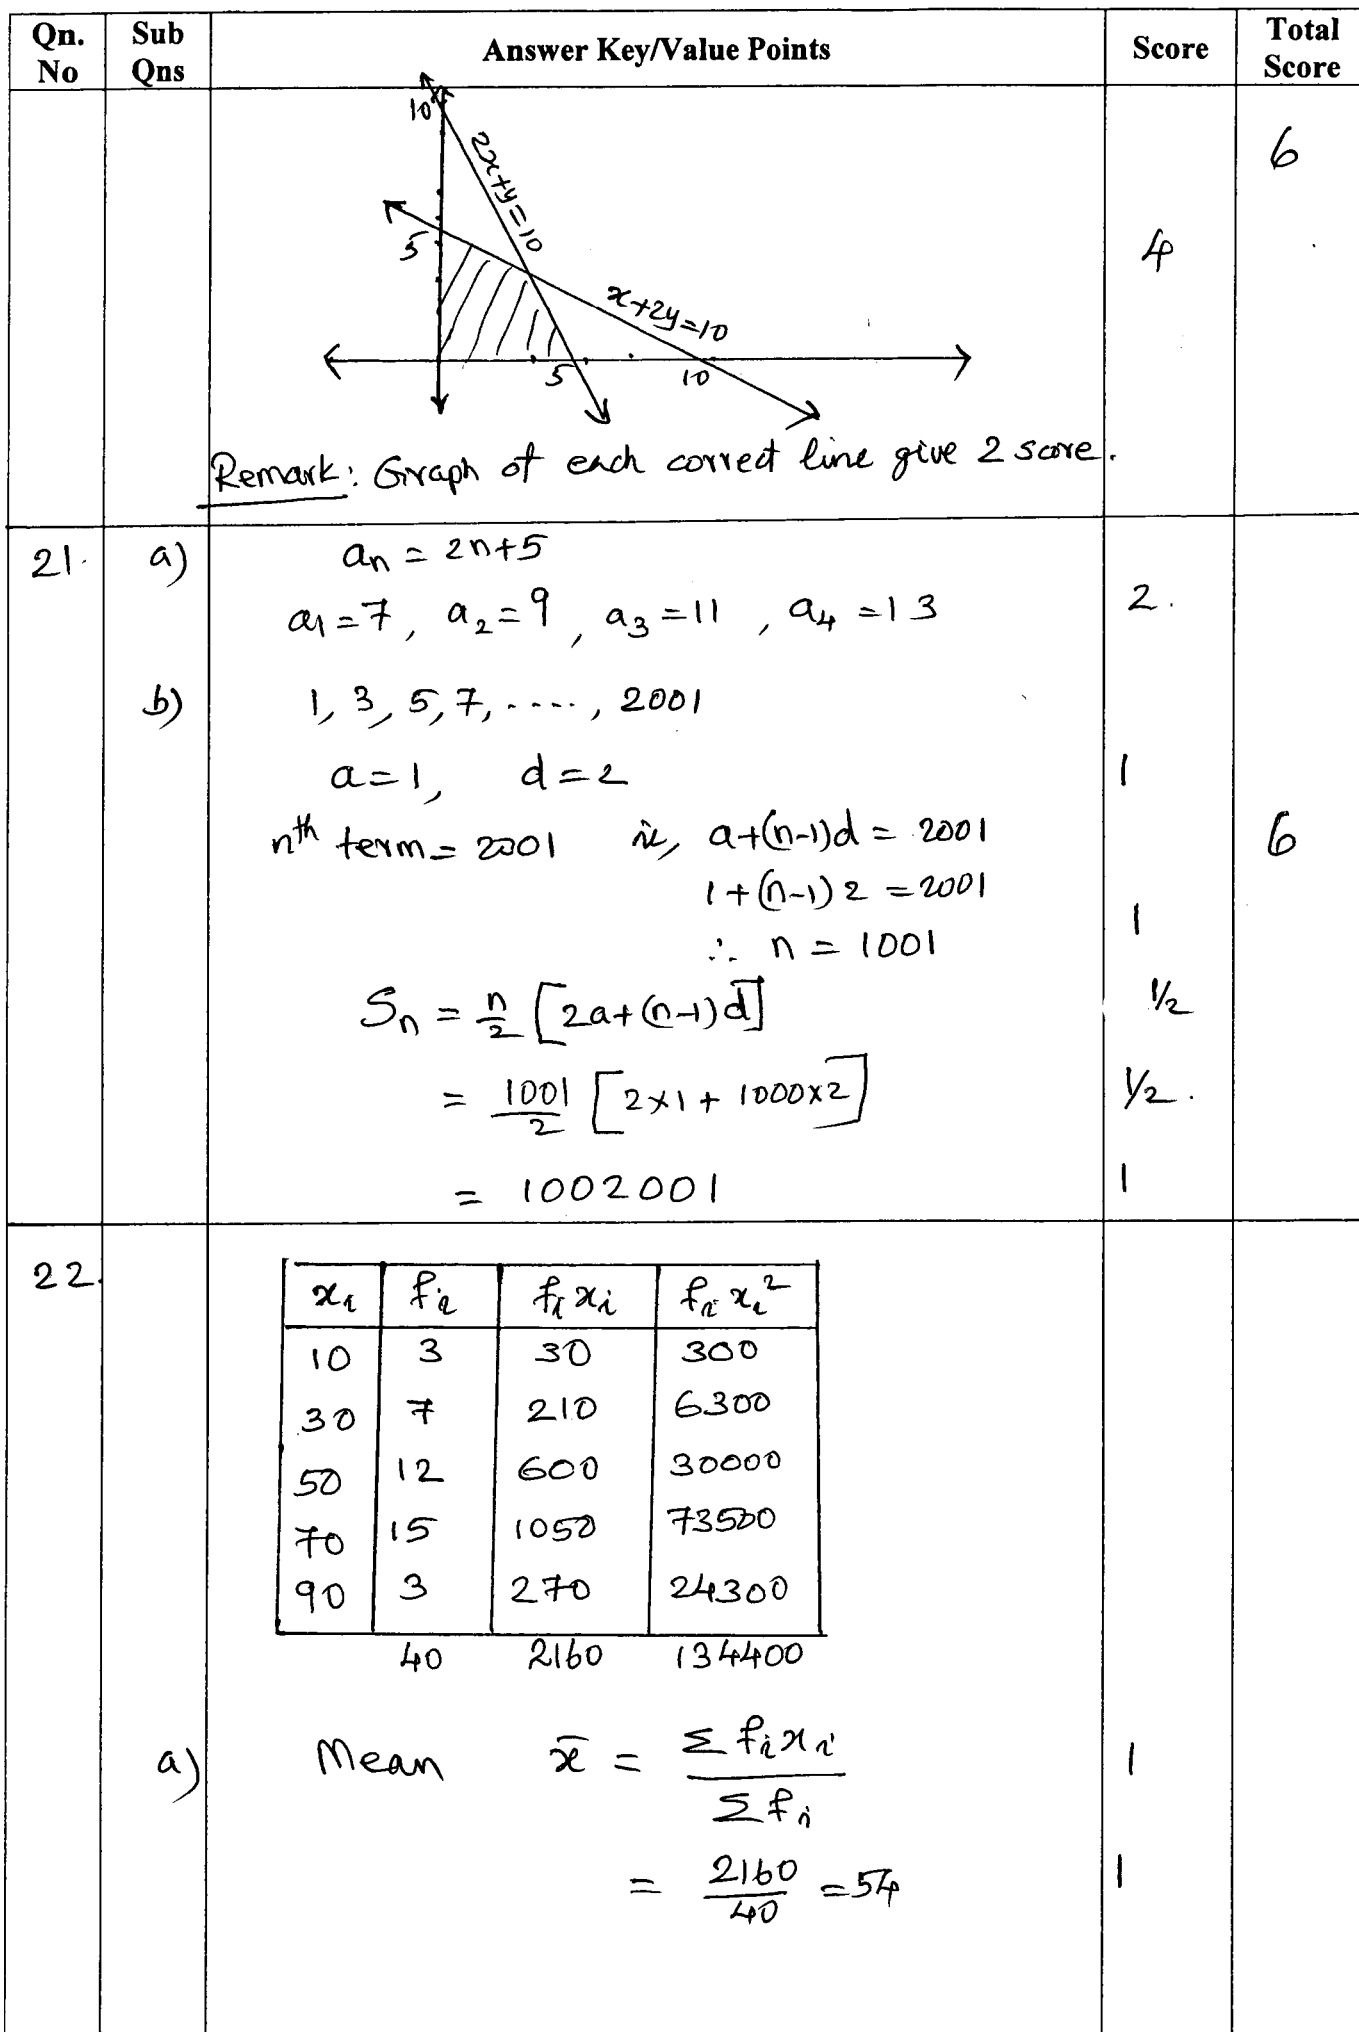 Qn. No Sub Qns Answer Key/Value Points Score Total Score
10
2x+y=10
6
5
4
x+2y=10
5 10
Remark: Graph of each correct line give 2 score.
21. a) an = 2n+5
a1=7, a2=9, a3=11, a4=13 2.
b) 1, 3, 5, 7, ....., 2001
a=1, d=2 1
nth term = 2001 ie, a+(n-1)d = 2001 6
1+(n-1)2 = 2001
∴ n = 1001 1
Sn = n/2 [2a+(n-1)d] 1/2
= 1001/2 [2×1+1000×2] 1/2.
= 1002001 1
22. xi fi fixi fixi²
10 3 30 300
30 7 210 6300
50 12 600 30000
70 15 1050 73500
90 3 270 24300
40 2160 134400
a) Mean x̄ = Σfixi / Σfi 1
= 2160/40 = 54 1